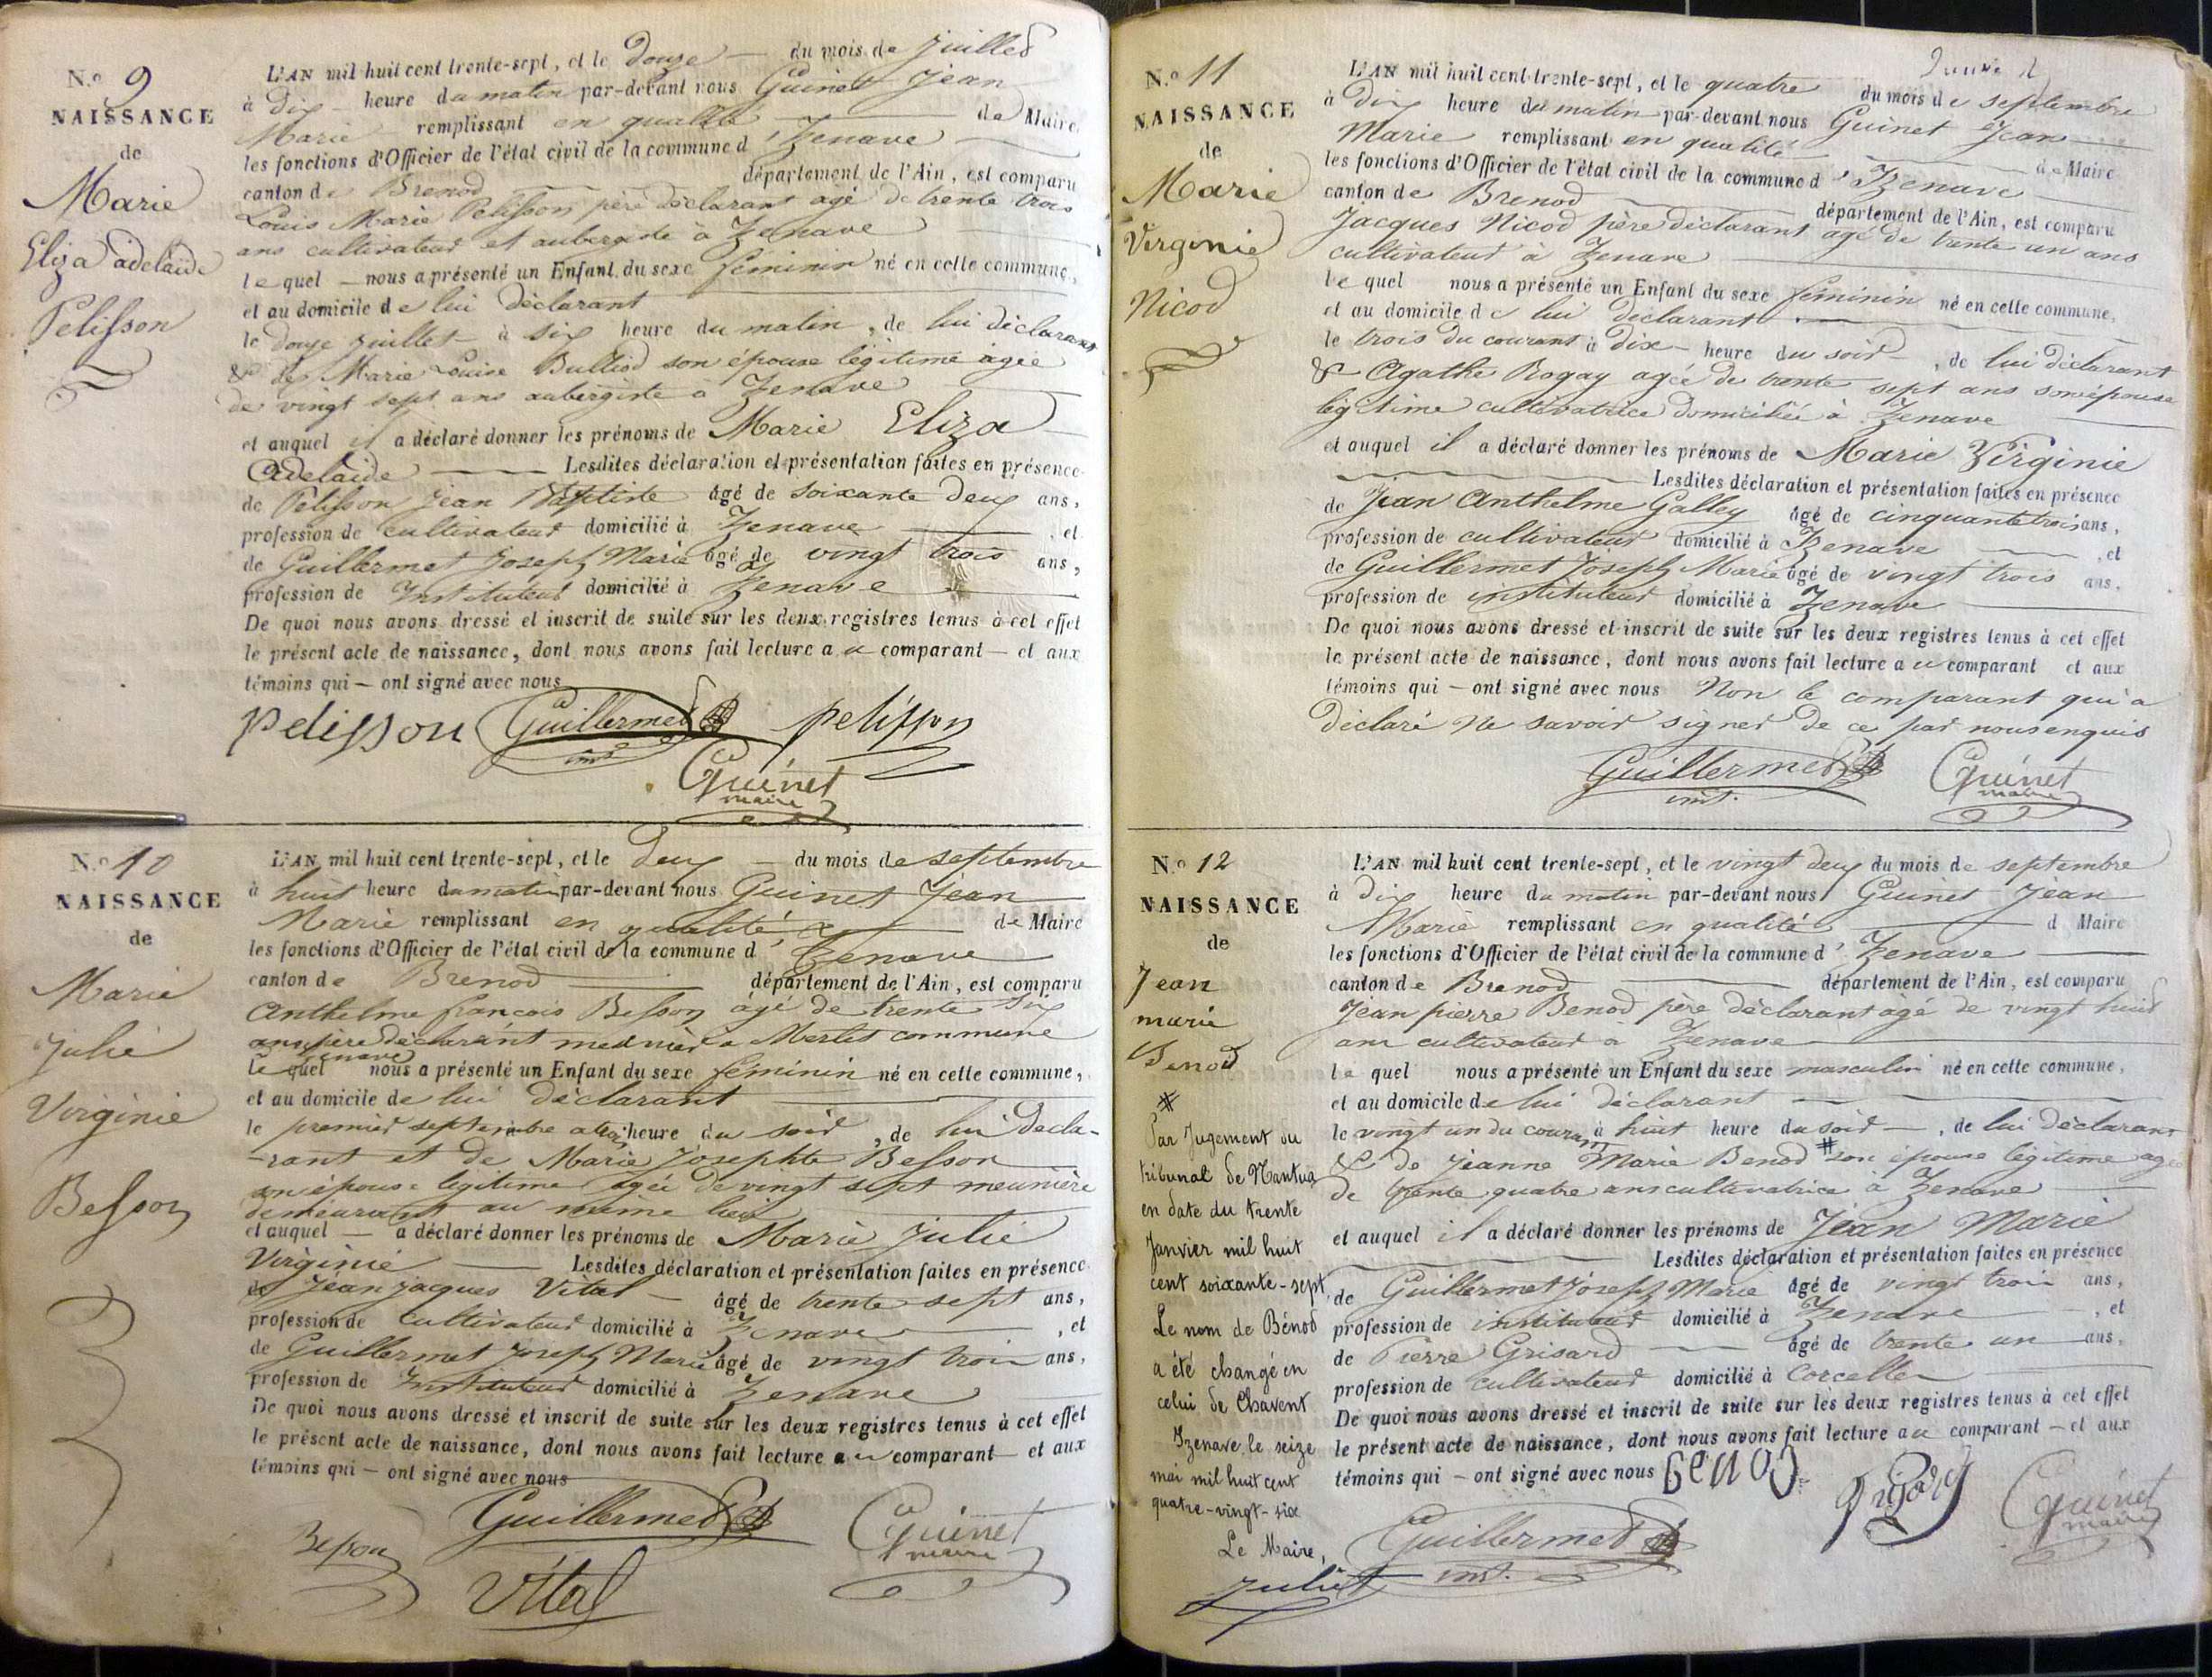 N.o 9
NAISSANCE
de
Marie
Eliza adelaïde
Pelisson
L'AN mil huit cent trente-sept, et le douze du mois de juillet
à dix heure du matin par-devant nous Guinet Jean
Marie remplissant en qualité de Maire
les fonctions d'Officier de l'état civil de la commune d'Izenave
canton de Brenod département de l'Ain, est comparu
Louis Marie Pelisson père déclarant agé de trente trois
ans cultivateur et aubergiste à Izenave
lequel nous a présenté un Enfant du sexe féminin né en cette commune,
et au domicile de lui déclarant
le douze juillet à six heure du matin, de lui déclarant
& de Marie Louise Bulliod son épouse légitime agée
de vingt sept ans aubergiste à Izenave
et auquel il a déclaré donner les prénoms de Marie Eliza
Adelaïde Lesdites déclaration et présentation faites en présence
de Pelisson Jean Baptiste âgé de soixante deux ans,
profession de cultivateur domicilié à Izenave, et
de Guillermet Joseph Marie âgé de vingt trois ans,
profession de Instituteur domicilié à Izenave
De quoi nous avons dressé et inscrit de suite sur les deux registres tenus à cet effet
le présent acte de naissance, dont nous avons fait lecture au comparant et aux
témoins qui ont signé avec nous
pelisson Guillermet pelisson
inst
Guinet
maire
N.o 10
NAISSANCE
de
Marie
Julie
Virginie
Besson
L'AN mil huit cent trente-sept, et le deux du mois de septembre
à huit heure du matin par-devant nous Guinet Jean
Marie remplissant en qualité de Maire
les fonctions d'Officier de l'état civil de la commune d'Izenave
canton de Brenod département de l'Ain, est comparu
Anthelme françois Besson âgé de trente six
ans père déclarant meunier a Merlet commune
izenave
lequel nous a présenté un Enfant du sexe féminin né en cette commune,
et au domicile de lui déclarant
le premier septembre a heure du soir, de lui décla-
rant et de Marie Josephte Besson
son épouse légitime agée de vingt sept meunière
demeurant au même lieu
et auquel a déclaré donner les prénoms de Marie Julie
Virginie Lesdites déclaration et présentation faites en présence
de Jean jacques Vital âgé de trente sept ans,
profession de cultivateur domicilié à Izenave, et
de Guillermet Joseph Marie âgé de vingt trois ans,
profession de Instituteur domicilié à Izenave
De quoi nous avons dressé et inscrit de suite sur les deux registres tenus à cet effet
le présent acte de naissance, dont nous avons fait lecture au comparant et aux
témoins qui ont signé avec nous
Besson Guillermet Guinet
maire
Vital
N.o 11
NAISSANCE
de
Marie
Virginie
Nicod
L'AN mil huit cent trente-sept, et le quatre du mois de septembre
à dix heure du matin par-devant nous Guinet Jean
Marie remplissant en qualité de Maire
les fonctions d'Officier de l'état civil de la commune d'Izenave
canton de Brenod département de l'Ain, est comparu
Jacques Nicod père déclarant agé de trente un ans
cultivateur à Izenave
lequel nous a présenté un Enfant du sexe féminin né en cette commune,
et au domicile de lui déclarant
le trois du courant à dix heure du soir, de lui déclarant
& Agathe Rogay agée de trente sept ans son épouse
légitime cultivatrice domiciliée à Izenave
et auquel il a déclaré donner les prénoms de Marie Virginie
Lesdites déclaration et présentation faites en présence
de Jean Anthelme Galley âgé de cinquante trois ans,
profession de cultivateur domicilié à Izenave, et
de Guillermet Joseph Marie âgé de vingt trois ans.
profession de instituteur domicilié à Izenave
De quoi nous avons dressé et inscrit de suite sur les deux registres tenus à cet effet
le présent acte de naissance, dont nous avons fait lecture au comparant et aux
témoins qui ont signé avec nous Non le comparant qui a
déclaré ne savoir signer de ce par nous enquis
Guillermet Guinet
inst. maire
N.o 12
NAISSANCE
de
Jean
marie
Benod
#
Par Jugement du
tribunal de Nantua
en date du trente
Janvier mil huit
cent soixante-sept,
Le nom de Bénod
a été changé en
celui de Chavent
Izenave, le seize
mai mil huit cent
quatre-vingt-six
Le Maire,
Juliet
L'AN mil huit cent trente-sept, et le vingt deux du mois de septembre
à dix heure du matin par-devant nous Guinet Jean
Marie remplissant en qualité d Maire
les fonctions d'Officier de l'état civil de la commune d'Izenave
canton de Brenod département de l'Ain, est comparu
Jean pierre Benod père déclarant âgé de vingt huit
ans cultivateur à Izenave
lequel nous a présenté un Enfant du sexe masculin né en cette commune,
et au domicile de lui déclarant
le vingt un du courant à huit heure du soir, de lui déclarant
& de Jeanne Marie Benod # son épouse légitime agée
de trente quatre ans cultivatrice à Izenave
et auquel il a déclaré donner les prénoms de Jean Marie
Lesdites déclaration et présentation faites en présence
de Guillermet Joseph Marie âgé de vingt trois ans,
profession de instituteur domicilié à Izenave, et
de Pierre Grisard âgé de trente un ans.
profession de cultivateur domicilié à Corcelles
De quoi nous avons dressé et inscrit de suite sur les deux registres tenus à cet effet
le présent acte de naissance, dont nous avons fait lecture au comparant et aux
témoins qui ont signé avec nous benod
Grisard Guinet
maire
Guillermet
inst.